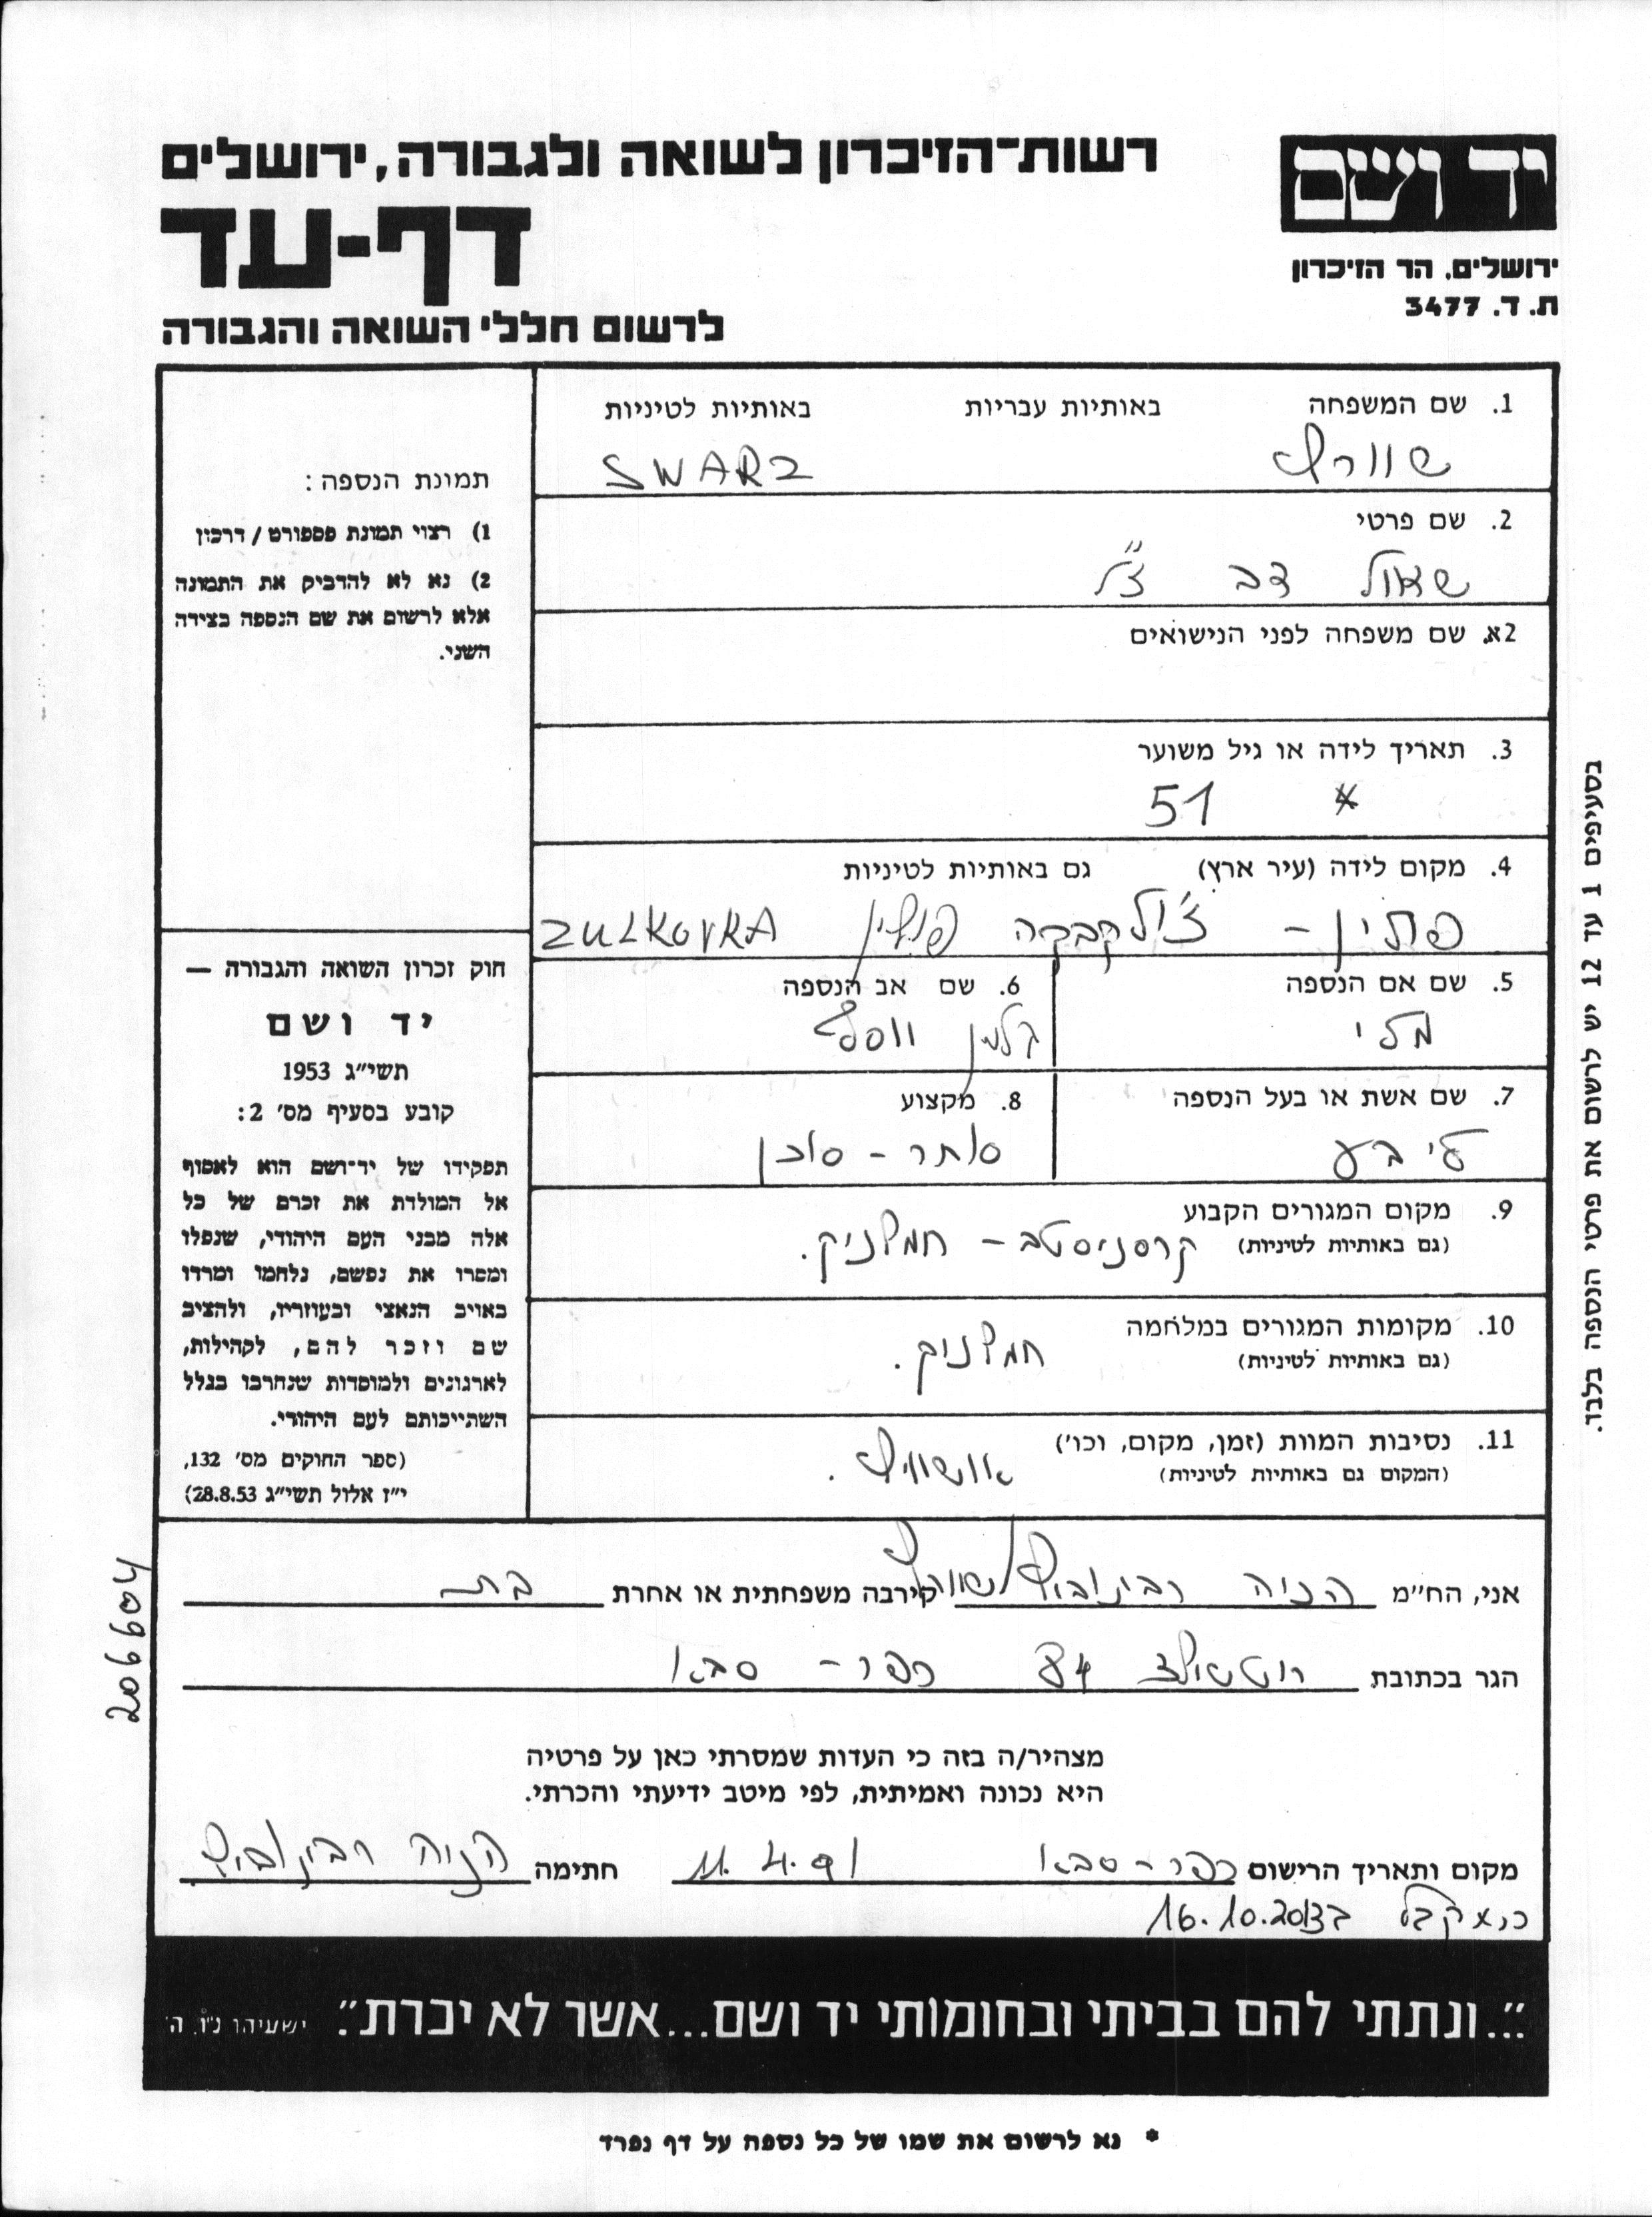 רשות-הזיכרון לשואה ולגבורה, ירושלים
דף-עד
לרשום חללי השואה והגבורה
יד ושם
ירושלים. הר הזיכרון
ת. ד. 3477
1. שם המשפחה באותיות עבריות באותיות לטיניות
שוורץ SWARZ
2. שם פרטי
שאול דב ז"ל
2א. שם משפחה לפני הנישואים
3. תאריך לידה או גיל משוער
51
4. מקום לידה (עיר ארץ) גם באותיות לטיניות
פולין ZULKOVKA
5. שם אם הנספה
מלי
6. שם אב הנספה
7. שם אשת או בעל הנספה
ליבע
8. מקצוע
סוחר - סוכן
9. מקום המגורים הקבוע
(גם באותיות לטיניות) קרסניסטב - חמלניק.
10. מקומות המגורים במלחמה
(גם באותיות לטיניות) חמלניק.
11. נסיבות המוות (זמן, מקום, וכו')
(המקום גם באותיות לטיניות) אוושוויץ.
תמונת הנספה:
1) רצוי תמונת פספורט / דרכון
2) נא לא להדביק את התמונה
אלא לרשום את שם הנספה בצידה
השני.
חוק זכרון השואה והגבורה —
יד ושם
תשי"ג 1953
קובע בסעיף מס' 2:
תפקידו של יד-ושם הוא לאסוף
אל המולדת את זכרם של כל
אלה מבני העם היהודי, שנפלו
ומסרו את נפשם, נלחמו ומרדו
באויב הנאצי ובעוזריו, ולהציב
שם וזכר להם, לקהילות,
לארגונים ולמוסדות שנחרבו בגלל
השתייכותם לעם היהודי.
(ספר החוקים מס' 132,
י"ז אלול תשי"ג 28.8.53)
בסעיפים 1 עד 12 יש לרשום את פרטי הנספה בלבד.
אני, הח"מ הניה רבינוביץ שוורץ קירבה משפחתית או אחרת בת
הגר בכתובת רוטשילד 84 כפר-סבא
מצהיר/ה בזה כי העדות שמסרתי כאן על פרטיה
היא נכונה ואמיתית, לפי מיטב ידיעתי והכרתי.
מקום ותאריך הרישום כפר-סבא 11.4.91 חתימה הניה רבינוביץ
16.10.2013
206604
"...ונתתי להם בביתי ובחומותי יד ושם...אשר לא יכרת". ישעיהו נ"ו. ה'
* נא לרשום את שמו של כל נספה על דף נפרד